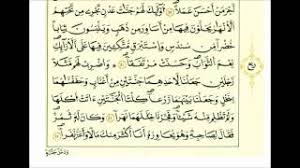 أَجْرَ مَنْ أَحْسَنَ عَمَلًا ۝ أُولَٰئِكَ لَهُمْ جَنَّاتُ عَدْنٍ تَجْرِي مِن تَحْتِهِمُ
الْأَنْهَارُ يُحَلَّوْنَ فِيهَا مِنْ أَسَاوِرَ مِن ذَهَبٍ وَيَلْبَسُونَ ثِيَابًا
خُضْرًا مِّن سُندُسٍ وَإِسْتَبْرَقٍ مُّتَّكِئِينَ فِيهَا عَلَى الْأَرَائِكِ
نِعْمَ الثَّوَابُ وَحَسُنَتْ مُرْتَفَقًا ۝ وَاضْرِبْ لَهُم مَّثَلًا
رَّجُلَيْنِ جَعَلْنَا لِأَحَدِهِمَا جَنَّتَيْنِ مِنْ أَعْنَابٍ وَحَفَفْنَاهُمَا
بِنَخْلٍ وَجَعَلْنَا بَيْنَهُمَا زَرْعًا ۝ كِلْتَا الْجَنَّتَيْنِ آتَتْ أُكُلَهَا
وَلَمْ تَظْلِم مِّنْهُ شَيْئًا وَفَجَّرْنَا خِلَالَهُمَا نَهَرًا ۝ وَكَانَ لَهُ ثَمَرٌ
فَقَالَ لِصَاحِبِهِ وَهُوَ يُحَاوِرُهُ أَنَا أَكْثَرُ مِنكَ مَالًا وَأَعَزُّ نَفَرًا ۝
وَدَخَلَ جَنَّتَهُ